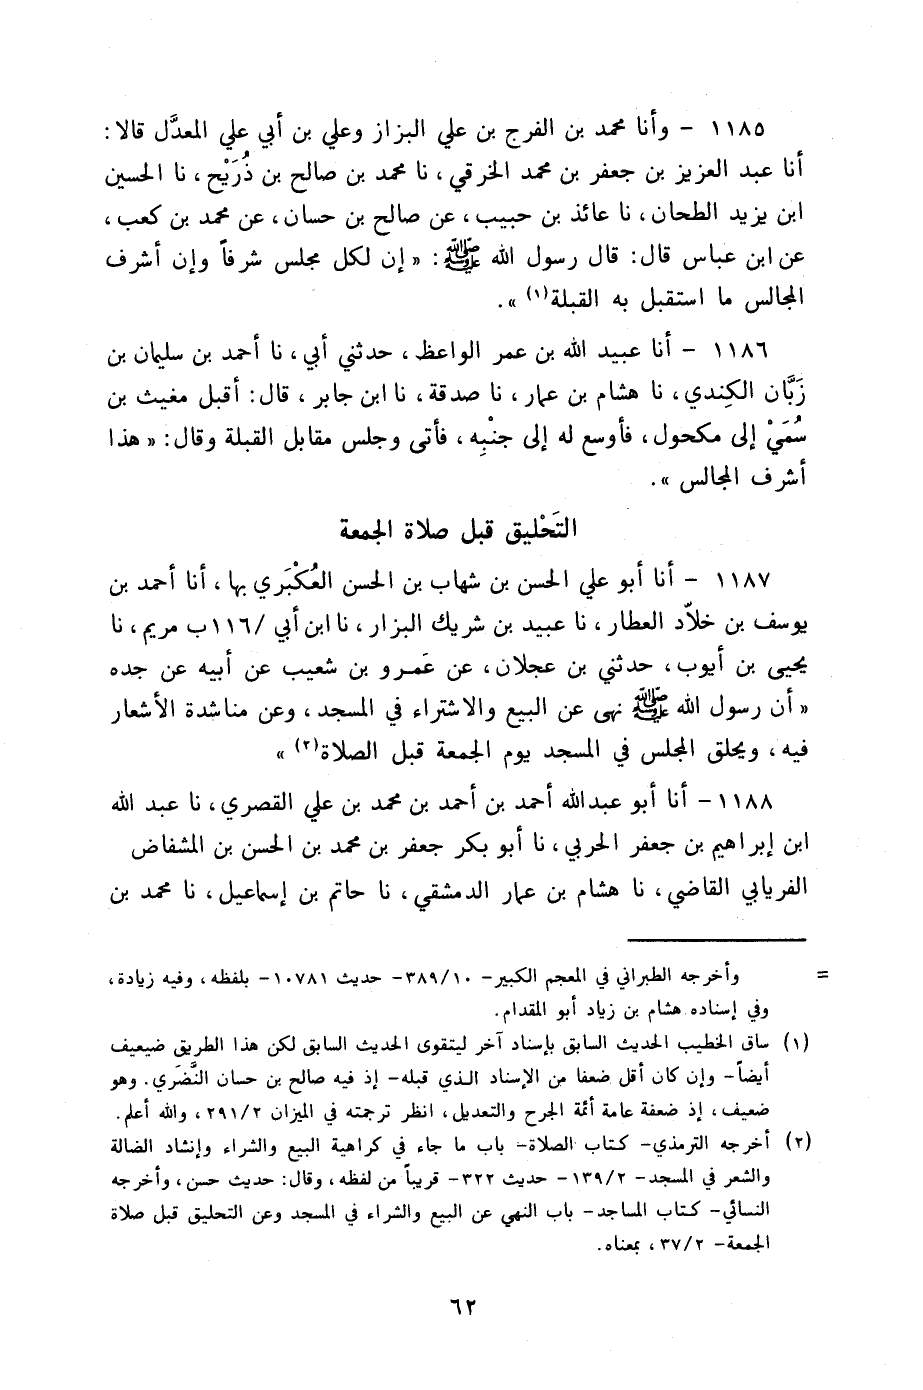 ١١٨٥ – وأنا محمد بن الفرج بن علي البزاز وعلي بن أبي علي المعدَّل قالا:
أنا عبد العزيز بن جعفر بن محمد الخرقي، نا محمد بن صالح بن ذُرَيْح، نا الحسين
ابن يزيد الطحان، نا عائذ بن حبيب، عن صالح بن حسان، عن محمد بن كعب،
عن ابن عباس قال: قال رسول الله ﷺ: « إن لكل مجلس شرفاً وإن أشرف
المجالس ما استقبل به القبلة(١) ».
١١٨٦ – أنا عبيد الله بن عمر الواعظ، حدثني أبي، نا أحمد بن سليمان بن
زَبَّان الكِندي، نا هشام بن عمار، نا صدقة، نا ابن جابر، قال: أقبل مغيث بن
سُمَيْ إلى مكحول، فأوسع له إلى جنْبِه، فأتى وجلس مقابل القبلة وقال: « هذا
أشرف المجالس ».
التَحْليق قبل صلاة الجمعة
١١٨٧ – أنا أبو علي الحسن بن شهاب بن الحسن العُكْبَري بها، أنا أحمد بن
يوسف بن خلاّد العطار، نا عبيد بن شريك البزار، نا ابن أبي /١١٦ب مريم، نا
يحيى بن أيوب، حدثني بن عجلان، عن عَمرو بن شعيب عن أبيه عن جده
« أن رسول الله ﷺ نهى عن البيع والاشتراء في المسجد، وعن مناشدة الأشعار
فيه، ويحلق المجلس في المسجد يوم الجمعة قبل الصلاة(٢) »
١١٨٨ – أنا أبو عبدالله أحمد بن أحمد بن محمد بن علي القصري، نا عبد الله
ابن إبراهيم بن جعفر الحربي، نا أبو بكر جعفر بن محمد بن الحسن بن المشفاض
الفريابي القاضي، نا هشام بن عمار الدمشقي، نا حاتم بن إسماعيل، نا محمد بن
= وأخرجه الطبراني في المعجم الكبير– ٣٨٩/١٠– حديث ١٠٧٨١– بلفظه، وفيه زيادة،
وفي إسناده هشام بن زياد أبو المقدام.
(١) ساق الخطيب الحديث السابق بإسناد آخر ليتقوى الحديث السابق لكن هذا الطريق ضيعيف
أيضاً– وإن كان أقل ضعفا من الإسناد الذي قبله– إذ فيه صالح بن حسان النَّضَري. وهو
ضعيف، إذ ضعفة عامة أئمة الجرح والتعديل، انظر ترجمته في الميزان ٢٩١/٢، والله أعلم.
(٢) أخرجه الترمذي– كتاب الصلاة– باب ما جاء في كراهية البيع والشراء وإنشاد الضالة
والشعر في المسجد– ١٣٩/٢– حديث ٣٢٢– قريباً من لفظه، وقال: حديث حسن، وأخرجه
النسائي– كتاب المساجد– باب النهي عن البيع والشراء في المسجد وعن التحليق قبل صلاة
الجمعة– ٣٧/٢، بمعناه.
٦٢